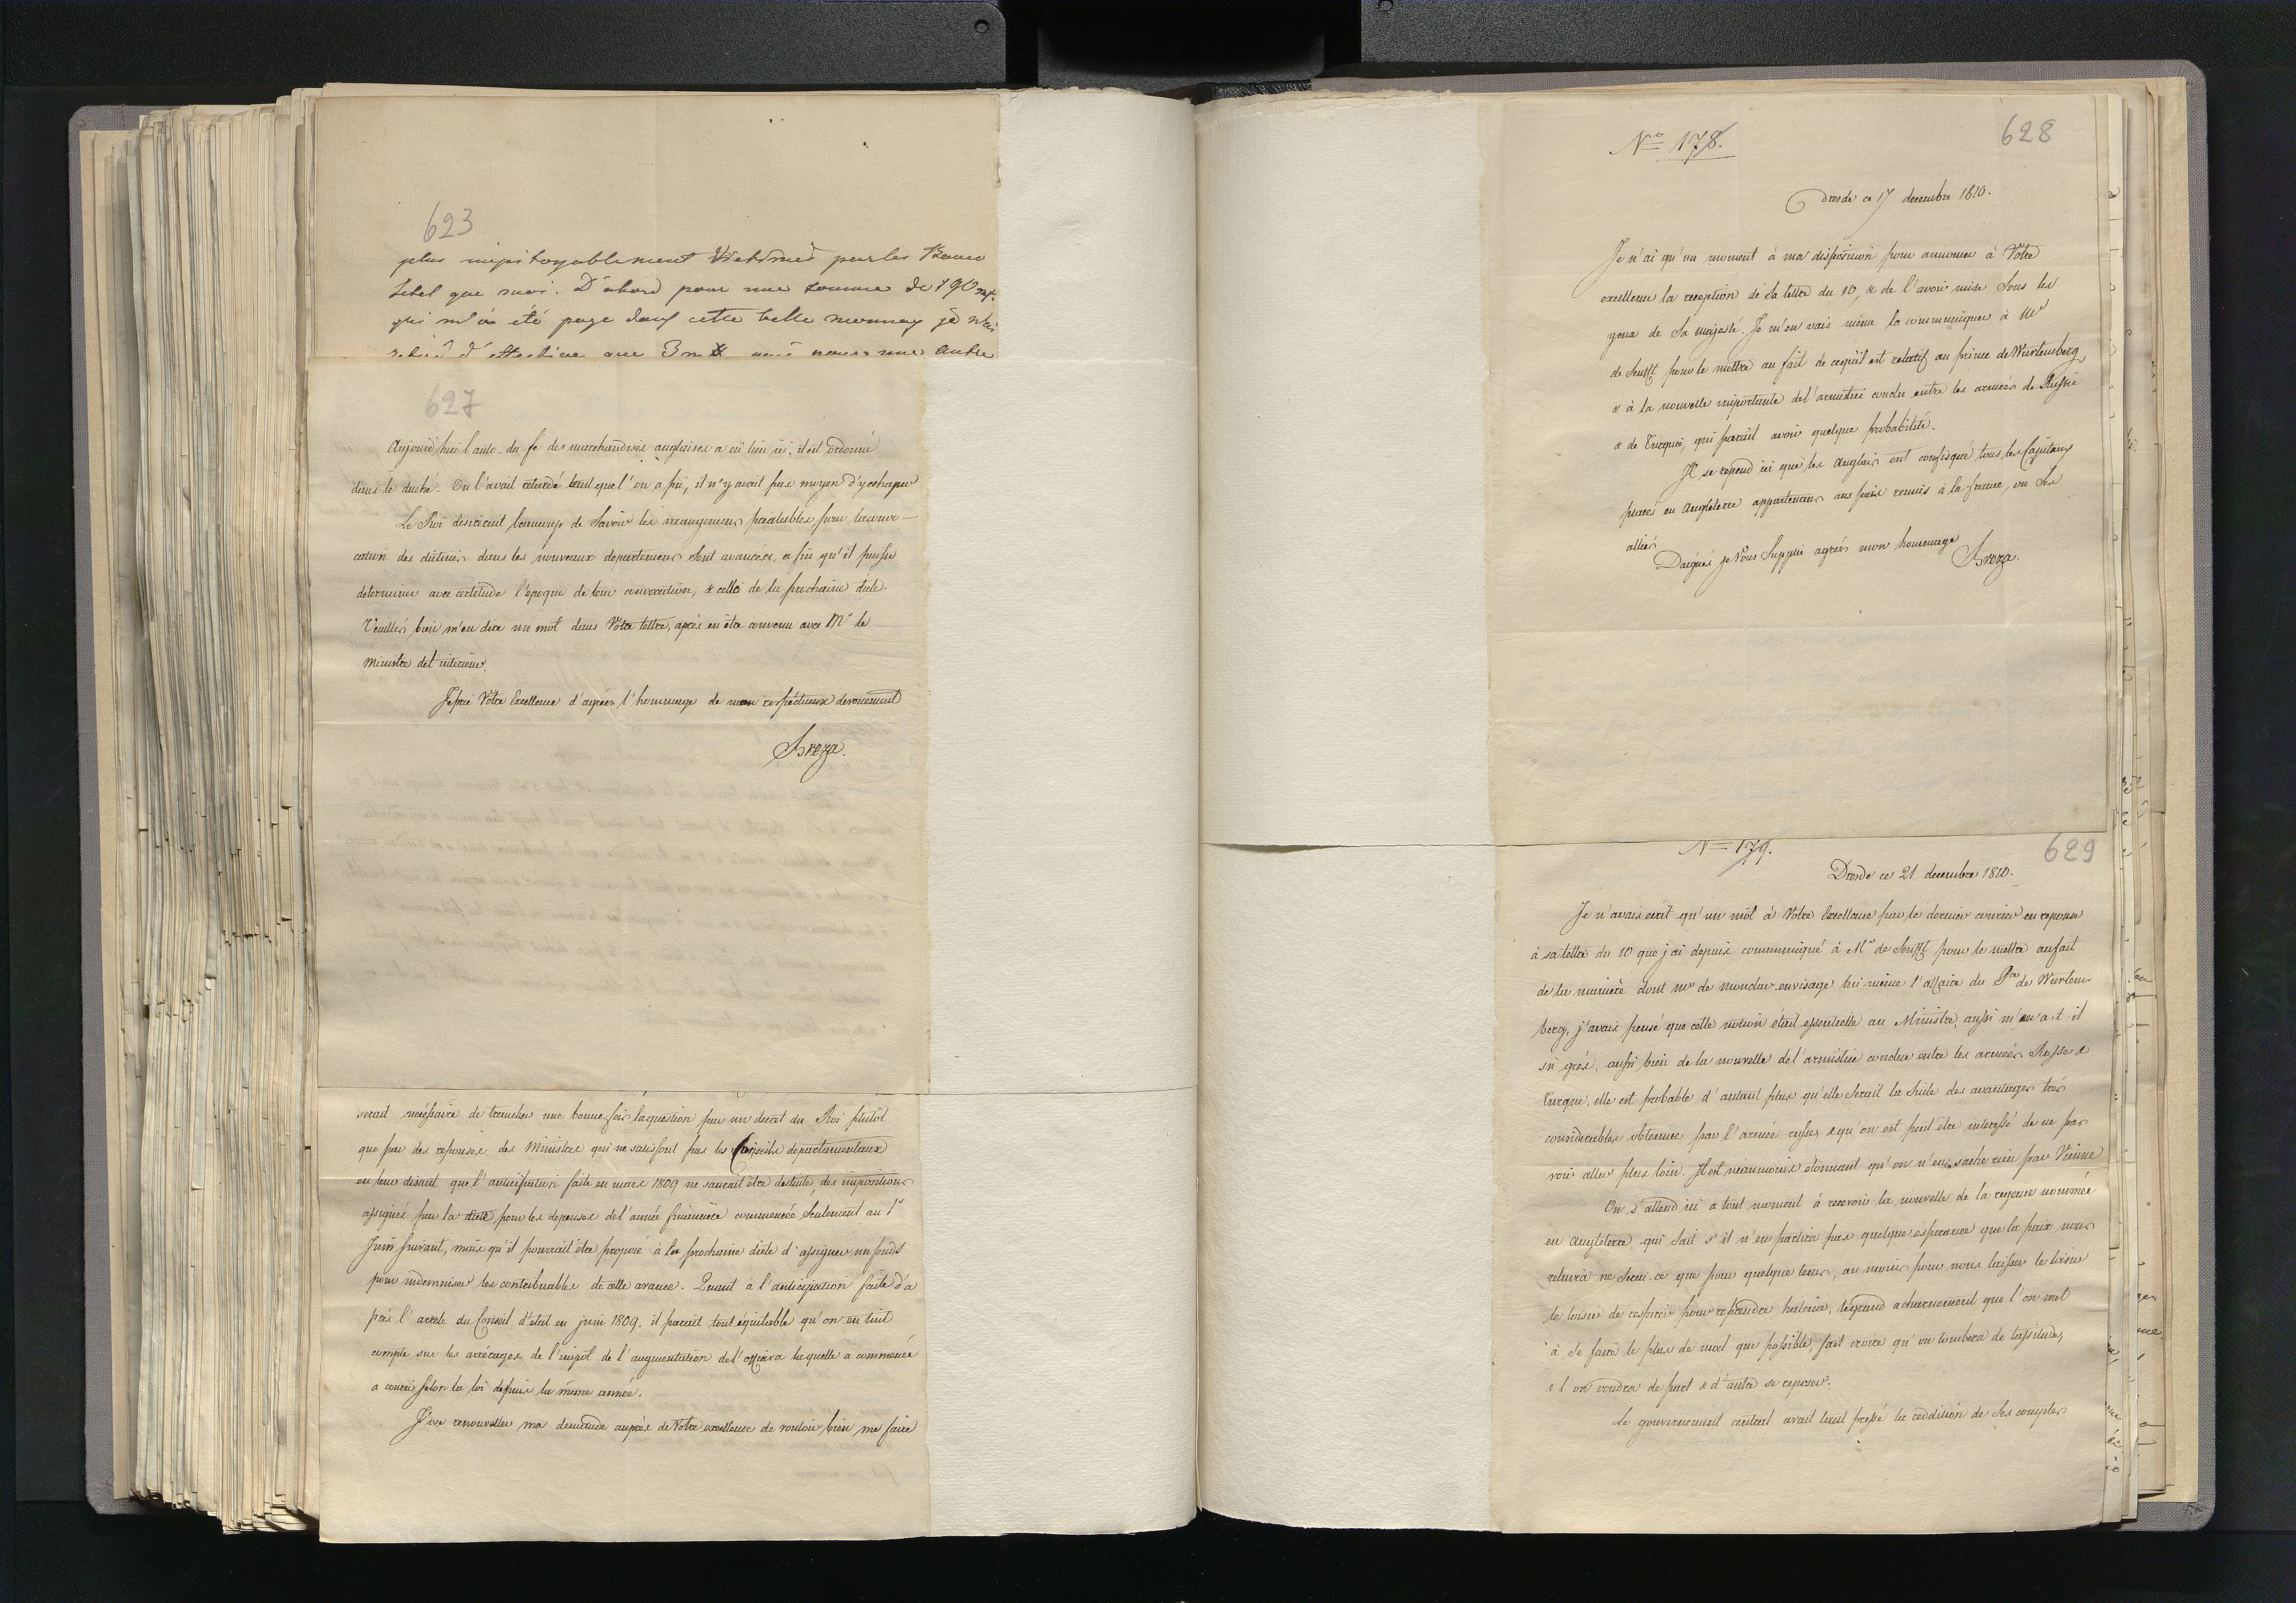 623
plus impitoyablement victimés par les Banco
Setel que moi. D'abord pour une somme de 190 m#.
qui m'a été payé dans cette belle monnay je n'ai
retiré d'effective que 3 m# une autre
627
Aujourd'hui l'auto-da-fe des marchandises anglaises a eü lieu ici, il est ordonné
dans le duché. On l'avait retardé tant que l'on a pü, il n'y avait pas moyen d'y echaper
Le Roi desirerait beaucoup de Savoir les arrangemens préalables pour la convo-
cation des diétines dans les nouveaux departemens sont avancées, afin qu'il puisse
determiner avec certitude l'epoque de leur convocation, & celle de la prochaine diete.
Veuillés bien m'en dire un mot dans Votre lettre, après en être convenu avec Mr le
ministre de l'interieur.
Je prie Votre Excellence d'agréer l'hommage de mon respectueux devouement
Breza.
serait nécéssaire de trancher une bonne fois la question par un decret du Roi plutôt
que par des reponses des Ministres qui ne satisfont pas les Conseils departementaux
en leur disant que l'anticipation faite en mars 1809 ne saurait être deduite, des impositions
assignés par la diete pour les depenses de l'année financière commencée Seulement au 1r
Juin suivant, mais qu'il pourrait être proposé à la prochaine diete d'assigner un fonds
pour indemniser les contribuables de cette avance. Quant à l'anticipation faite d'a
près l'arrete du Conseil d'etat en juin 1809. il parait tout équitable qu'on en tint
compte sur les arrérages de l'impôt de l'augmentation de l'offiara laquelle a commencée
a courir selon la loi depuis la même année.
J'ose renouveller ma demande auprès de Votre excellence de vouloir bien me faire
No 178.
628
Dresde ce 17 decembre 1810.
Je n'ai qu'un moment à ma disposition pour annoncer à Votre
excellence la reception de Sa lettre du 10, & de l'avoir mise Sous les
yeux de Sa majesté. Je m'en vais même la communiquer à Mr
de Senfft pour le mettre au fait de ce qui est relatif au prince de Wurtemberg
& à la nouvelle importante de l'armistice conclu entre les armées de Russie
& de Turquie, qui parait avoir quelque probabilité.
Il se repend ici que les Anglais ont confisqué tous les Capitaux
placés en Angleterre appartenans aux païs reunis à la france, ou Ses
alliés
Daignés je Vous Supplie agréer mon hommage
Breza.
N 179.
629
Dresde ce 21 decembre 1810.
Je n'avais ecrit qu'un môt à Votre Excellence par le dernier courier en reponse
à sa lettre du 10 que j'ai depuis communiqué à Mr de Senfft pour le mettre au fait
de la manière dont mr de envisage lui même l'affaire du Pce de Wurtem-
berg, j'avais pensé que cette notion était essentielle au Ministre, aussi m'en a-t-il
sü gré, aussi bien de la nouvelle de l'armistice conclue entre les armées Russe &
Turque, elle est probable d'autant plus qu'elle serait la suite des avantages très
considerables obtenus par l'armée russe, & qu'on est peut être interessé de ne pas
voir aller plus loin. Il est néanmoins étonnant qu'on n'en sache rien par Vienne
On s'attend ici a tout moment à recevoir la nouvelle de la regence nommée
en Angleterre, qui Sait s'il n'en partira pas quelque esperance que la paix nous
reluira ne Serai-ce que pour quelque tems, au moins pour nous laisser le loisir
le loisir de respirer pour reprendre haleine, le grand acharnement que l'on met
à se faire le plus de mal que possible, fait croire qu'on tombera de lassitude,
& l'on voudra de part & d'autre se reposer.
Le gouvernement central avait tant pressé la reddition de Ses comptes